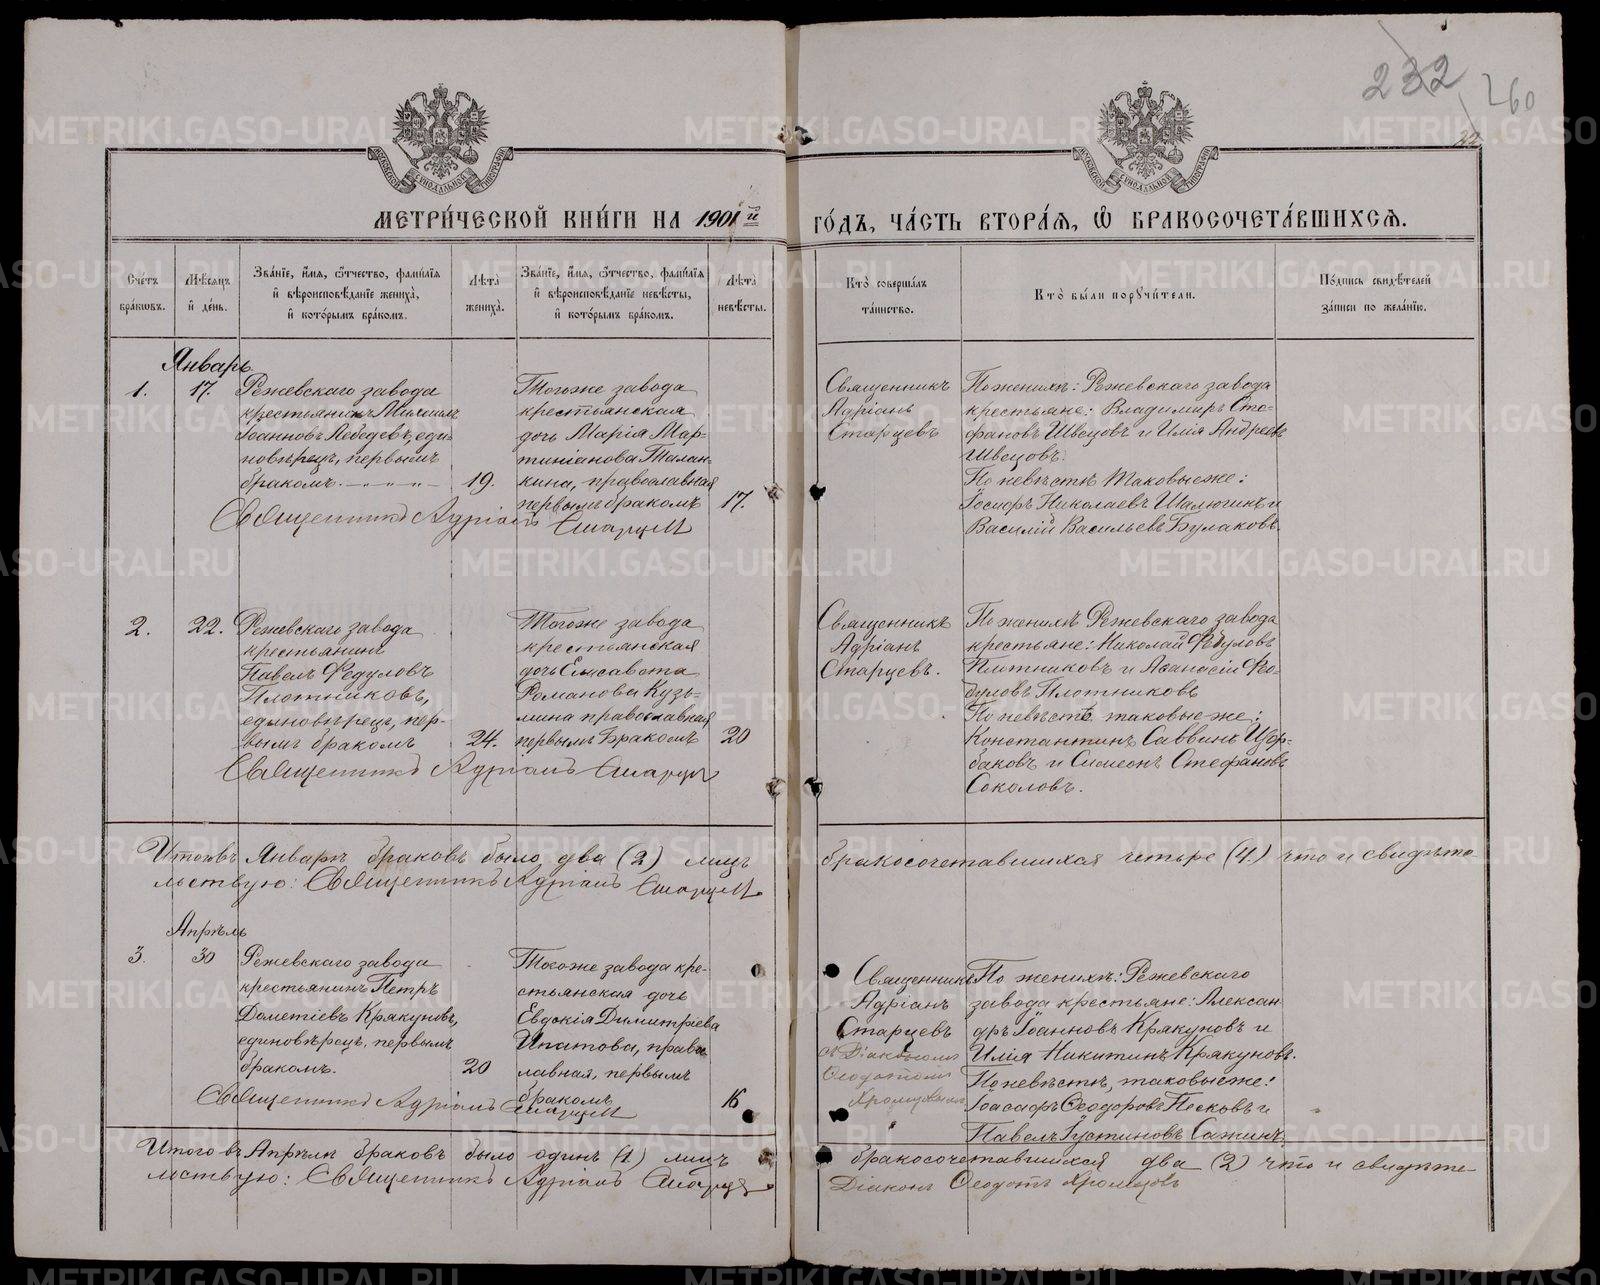 232
260
МЕТРИ́ЧЕСКОЙ КНИ́ГИ НА 1901й ГО́ДЪ, ЧА́СТЬ ВТОРА́Я, Ѽ БРАКОСОЧЕТА́ВШИХСѦ.
Сче́тъ бра́ковъ.
Мѣ́сяцъ и҆ де́нь.
Зва́нїе, и҆́мя, ѻ҆́тчество, фами́лїя и҆ вѣроисповѣ́данїе жениха̀, и҆ кото́рымъ бра́комъ.
Лѣ́та жениха̀.
Зва́нїе, и҆́мя, ѻ҆́тчество, фами́лїя и҆ вѣроисповѣ́данїе невѣ́сты, и҆ кото́рымъ бра́комъ.
Лѣ́та невѣ́сты.
Кто̀ соверша́лъ та́инство.
Кто̀ бы́ли порꙋчи́тели.
По́дпись свидѣ́телей за́писи по жела́нїю.
Январь
1.
17.
Режевскаго завода
крестьянинъ
Іоанновъ Лебедевъ, еди-
новѣрецъ, первымъ
бракомъ.
19.
Тогоже завода
крестьянская
дочь Марія Мар-
тиніанова Талан-
кина, православная
первымъ бракомъ
17.
Священникъ Адріанъ Старцевъ
Священникъ
Адріанъ
Старцевъ
По женихѣ: Режевскаго завода
крестьяне: Владимиръ Сте-
фановъ Швецовъ и Илія Андреевъ
Швецовъ.
По невѣстѣ таковыеже:
Іосифъ Николаевъ Шалюгинъ и
Василій Васильевъ Булаковъ.
2.
22.
Режевскаго завода
крестьянинъ
Павелъ Федуловъ
Плотниковъ,
единовѣрецъ, пер-
вымъ бракомъ
24.
Тогоже завода
крестьянская
дочь Елисавета
Романова Кузь-
мина православная
первымъ бракомъ
20
Священникъ Адріанъ Старцевъ
Священникъ
Адріанъ
Старцевъ.
По женихѣ Режевскаго завода
крестьяне: Николай Федуловъ
Плотниковъ и Аѳанасій Фе-
дуловъ Плотниковъ
По невѣстѣ таковыеже:
Константинъ Саввинъ Щер-
баковъ и Симеонъ Стефановъ
Соколовъ.
Итого въ Январѣ браковъ было два (2) лицъ бракосочетавшихся четыре (4.) что и свидѣте-
льствую: Священникъ Адріанъ Старцевъ
Апрѣль
3.
30
Режевскаго завода
крестьянинъ Петръ
Дометіевъ Крякуновъ,
единовѣрецъ, первымъ
бракомъ.
20
Тогоже завода кре-
стьянская дочь
Евдокія Димитріева
Ипатова, право
лавная, первымъ
бракомъ
16
Священникъ Адріанъ Старцевъ
Священникъ
Адріанъ
Старцевъ
съ Діакономъ
Ѳеодотомъ
Хромцовымъ
По женихѣ: Режевскаго
завода крестьяне: Алексан-
дръ Іоанновъ Крякуновъ и
Илія Никитинъ Крякуновъ.
По невѣстѣ, таковыеже:
Іоасафъ Ѳеодоровъ Песковъ и
Павелъ Іустиновъ Сажинъ.
Итого въ Апрѣлѣ браковъ было одинъ (1) лицъ бракосочетавшихся два (2) что и свидѣте
льствую: Священникъ Адріанъ Старцевъ Діаконъ Ѳеодотъ Хромцовъ
METRIKI.GASO-URAL.RU